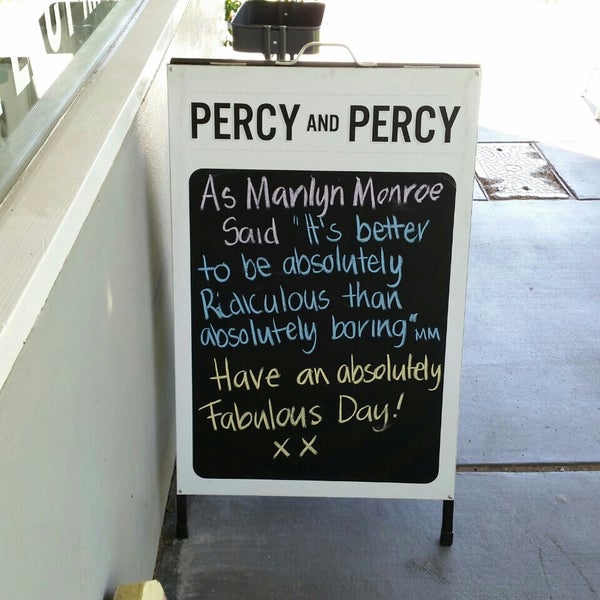 PERCY AND PERCY
As Marilyn Monroe
Said "It's better
to be absolutely
Ridiculous than
absolutely boring" MM
Have an absolutely
Fabulous Day!
x x